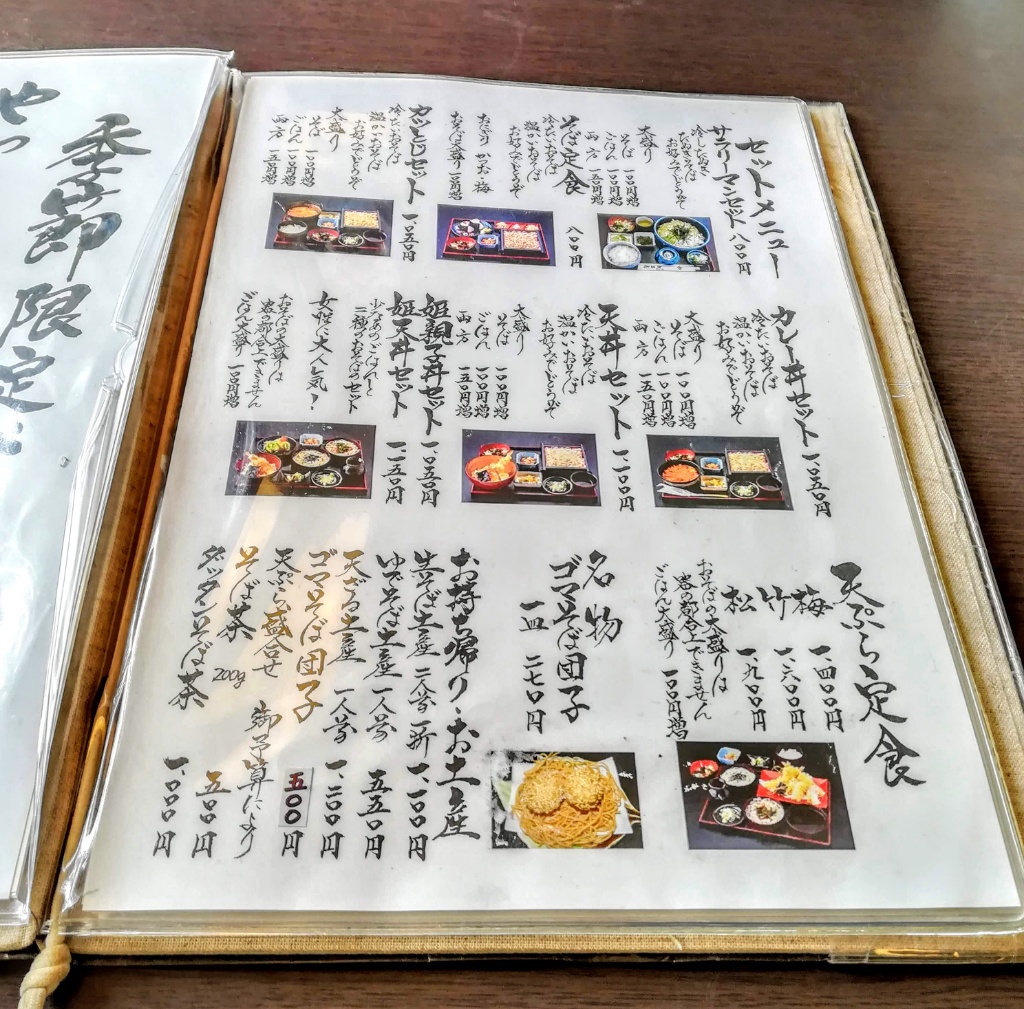 セットメニュー
サラリーマンセット 八〇〇円
冷したぬき
お好みでどうぞ
大盛り
そば 一〇〇円増
ごはん 一〇〇円増
両方 一五〇円増
そば定食 八〇〇円
冷たいおそば
温かいおそば
お好みでどうぞ
おにぎり かつお・梅
おそば大盛り 一〇〇円増
カツとじセット 一、〇五〇円
冷たいおそば
温かいおそば
お好みでどうぞ
大盛り
そば 一〇〇円増
ごはん 一〇〇円増
両方 一五〇円増
カレー丼セット 一、〇五〇円
冷たいおそば
温かいおそば
お好みでどうぞ
大盛り
そば 一〇〇円増
ごはん 一〇〇円増
両方 一五〇円増
天丼セット 一、一〇〇円
冷たいおそば
温かいおそば
お好みでどうぞ
大盛り
そば 一〇〇円増
ごはん 一〇〇円増
両方 一五〇円増
姫親子丼セット 一、〇五〇円
姫天丼セット 一、一五〇円
少なめのごはんと
二種のお好みのセット
女性に大人気!
おそばの大盛りは
器の都合上できません
ごはん大盛り 一〇〇円増
天ぷら定食
梅 一、四〇〇円
竹 一、六〇〇円
松 一、九〇〇円
おそばの大盛りは
器の都合上できません
ごはん大盛り 一〇〇円増
名物
ゴマそば団子
一皿 二七〇円
お持ち帰り・お土産
生そば土産 二人前一折 一、一〇〇円
ゆでそば土産 一人前 五五〇円
天ざる土産 一人前 一、二〇〇円
ゴマそば団子 五〇〇円
天ぷら盛合せ 御予算により
そば茶 200g 五〇〇円
ダッタンそば茶 一、〇〇〇円
季節限定
やつ